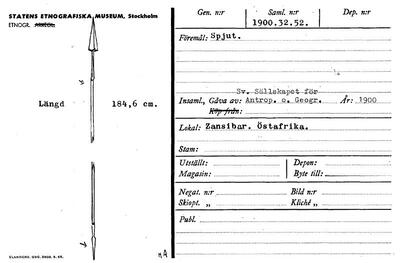 STATENS ETNOGRAFISKA MUSEUM, Stockholm
ETNOGR.
Längd 184,6 cm.
Gen. n:r Saml. n:r Dep. n:r
1900.32.52.
Föremål: Spjut.
Sv. Sällskapet för
Insaml., Gåva av: Antrop. o. Geogr. År: 1900
Köp från:
Lokal: Zansibar. Östafrika.
Stam:
Utställt: Depon:
Magasin: Byte till:
Negat. n:r Bild n:r
Skiopt. „ Kliché „
Publ.